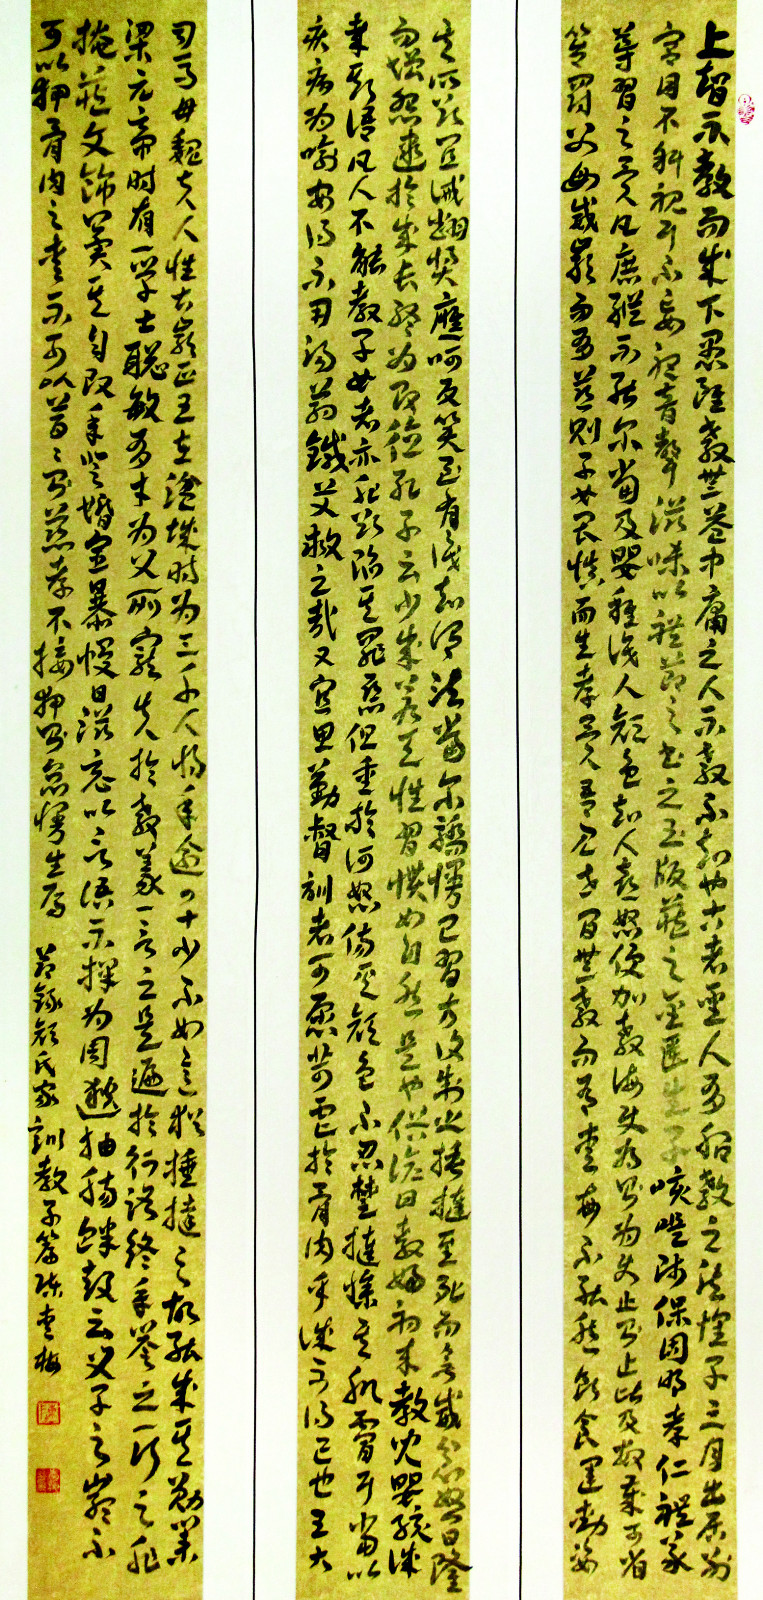 上智不教而成下愚雖教無益中庸之人不教不知也古者聖人有胎教之法懷子三月出居別
宮目不斜視耳不妄聽音聲滋味以禮節之書之玉版藏之金匱生子咳㖷師保固明孝仁禮義
導習之矣凡庶縱不能尔當及嬰稚識人顏色知人喜怒便加教誨使為則為使止則止比及數歲可省
笞罰父母威嚴而有慈則子女畏慎而生孝矣吾見世間無教而有愛每不能然飲食運動恣
其所欲宜誡翻獎應呵反笑至有識知謂法當尔驕慢已習方復制之捶撻至死而無威忿怒日隆
而增怨逮於成長終為敗德孔子云少成若天性習慣如自然是也俗諺曰教婦初來教兒嬰孩誠
哉斯語凡人不能教子女者亦非欲陷其罪惡但重於訶怒傷其顏色不忍楚撻慘其肌膚耳當以
疾病為喻安得不用湯藥鍼艾救之哉又宜思勤督訓者可願苛虐於骨肉乎誠不得已也王大
司馬母魏夫人性甚嚴正王在湓城時為三千人將年逾四十少不如意猶捶撻之故能成其勳業
梁元帝時有一學士聰敏有才為父所寵失於教義一言之是遍於行路終年譽之一行之非
掩藏文飾冀其自改年登婚宦暴慢日滋竟以言語不擇為周逖抽腸釁鼓云父子之嚴不
可以狎骨肉之愛不可以簡簡則慈孝不接狎則怠慢生焉 節錄顏氏家訓教子篇陳愛梅